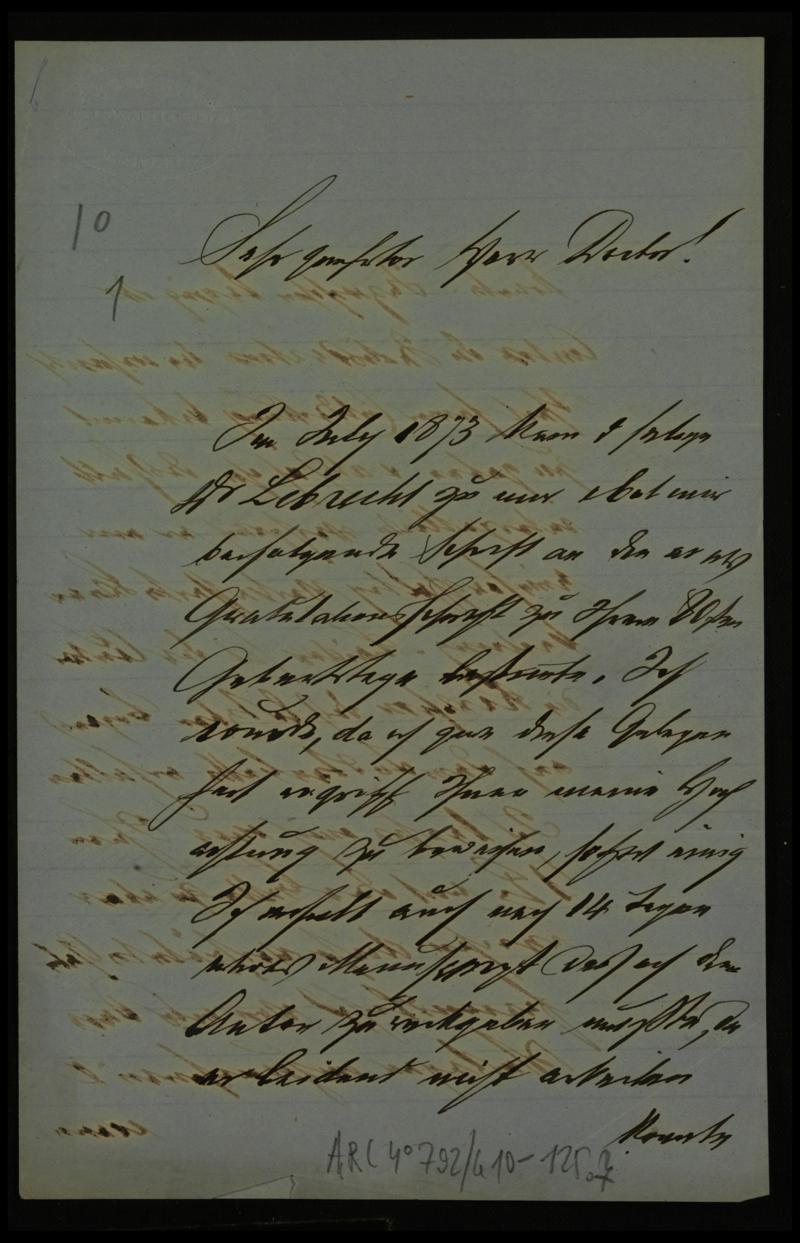 10
1
Sehr geehrter Herr Doctor!
Im July 1873 kam d selige
Dr Lebrecht zu mir & bot mir
beifolgende Schrift an den er als
Gratulationsschrift zu Ihrem 80sten
Geburtstage bestimte. Ich
wurde, da ich gern diese Gelegen
heit ergriff Ihnen meine Hoch
achtung zu beweisen, sofort einig
Ich erhielt auch nach 14 Tagen
Manuscript das ich dem
Autor zurückgeben mußte, da
er leidend nicht arbeiten
konnte
ARC 4° 792/G 10-125.7